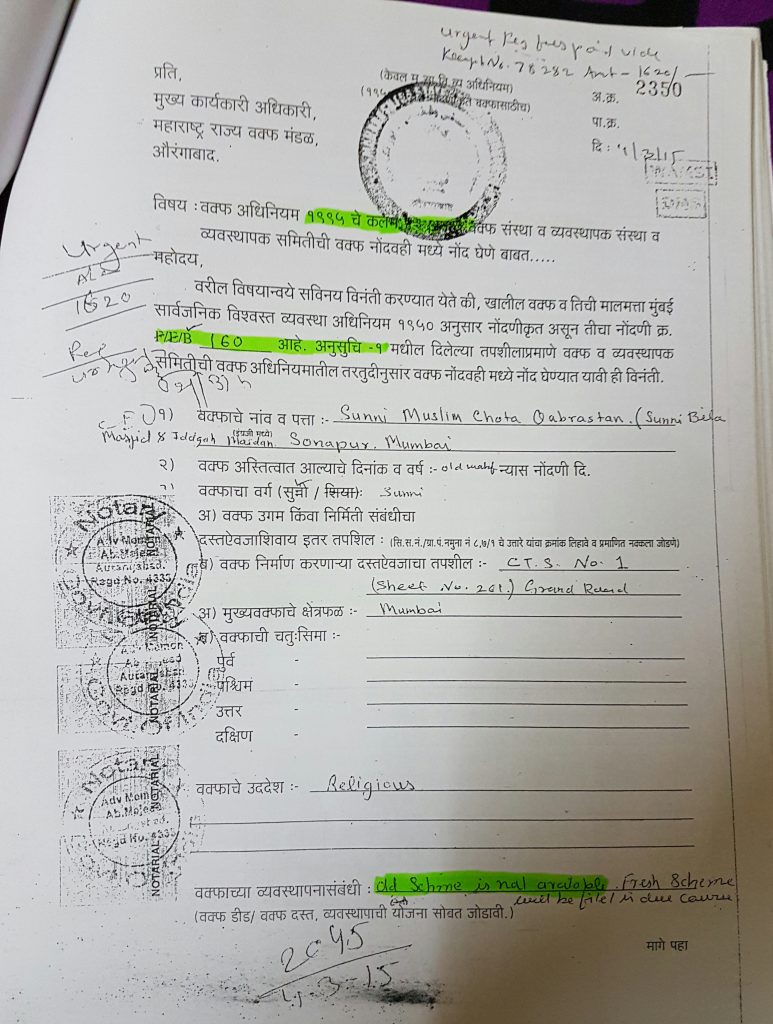 urgent Reg fees paid vide
Receipt No. 78282 Amt - 1620/-
प्रति,
(केवल म.सा.वि.व्य अधिनियम)
अ.क्र. 2350
मुख्य कार्यकारी अधिकारी,
वक्फासाठीच)
पा.क्र.
महाराष्ट्र राज्य वक्फ मंडळ,
दि : 4/3/15
औरंगाबाद.
विषय : वक्फ अधिनियम १९९५ चे कलम वक्फ संस्था व व्यवस्थापक संस्था व
व्यवस्थापक समितीची वक्फ नोंदवही मध्ये नोंद घेणे बाबत.....
Urgent
महोदय,
1620
वरील विषयान्वये सविनय विनंती करण्यात येते की, खालील वक्फ व तिची मालमत्ता मुंबई
सार्वजनिक विश्वस्त व्यवस्था अधिनियम १९५० अनुसार नोंदणीकृत असून तीचा नोंदणी क्र.
160 आहे. अनुसुचि -१ मधील दिलेल्या तपशीलाप्रमाणे वक्फ व व्यवस्थापक
समितीची वक्फ अधिनियमातील तरतुदीनुसार वक्फ नोंदवही मध्ये नोंद घेण्यात यावी ही विनंती.
१) वक्फाचे नांव व पत्ता :- Sunni Muslim Chota Qabrastan. (Sunni Bela
Masjid & Iddgah Maidan. Sonapur. Mumbai
२) वक्फ अस्तित्वात आल्याचे दिनांक व वर्ष :- old wakf न्यास नोंदणी दि.
वक्फाचा वर्ग (सुन्नी / शिया): Sunni
अ) वक्फ उगम किंवा निर्मिती संबंधीचा
दस्तऐवजाशिवाय इतर तपशिल : (सि.स.नं./प्रा.पं.नमुना नं ८,७/१ चे उतारे यांचा क्रमांक लिहावे व प्रमाणित नक्कला जोडणे)
ब) वक्फ निर्माण करणाऱ्या दस्तऐवजाचा तपशील :- C.T.S. No. 1
(Sheet No. 261.) Grand Road
अ) मुख्यवक्फाचे क्षेत्रफळ :- Mumbai
ब) वक्फाची चतु:सिमा :-
पुर्व -
पश्चिमं -
उत्तर -
दक्षिण -
वक्फाचे उददेश :- Religious
वक्फाच्या व्यवस्थापनासंबंधी : Old Scheme is not available. Fresh Scheme
will be filed in due course
(वक्फ डीड/ वक्फ दस्त, व्यवस्थापाची योजना सोबत जोडावी.)
मागे पहा
2045
4-3-15
Notary
Adv Momon
Ab.Majeed
Aurangabad.
Regd No. 4333
NOTARIAL
Notary
Adv Momon
Ab.Majeed
NOTARIAL